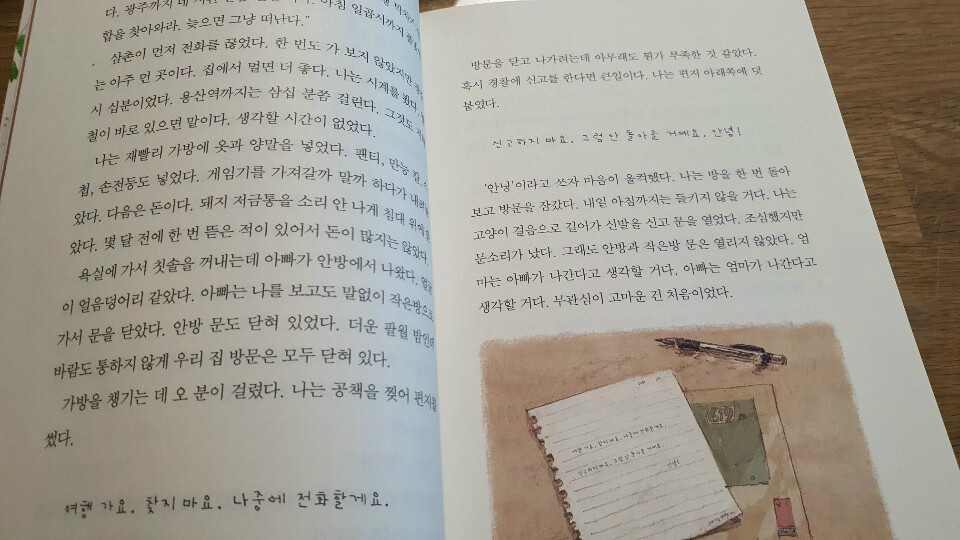 다. 광주까지 네
합을 찾아와라. 늦으면 그냥 떠난다.”
삼촌이 먼저 전화를 끊었다. 한 번도 가 보지 않았지만
는 아주 먼 곳이다. 집에서 멀면 더 좋다. 나는 시계를 봤다.
시 십분이었다. 용산역까지는 삼십 분쯤 걸린다. 그것도
철이 바로 있으면 말이다. 생각할 시간이 없었다.
나는 재빨리 가방에 옷과 양말을 넣었다. 팬티, 만능 칼, 수
첩, 손전등도 넣었다. 게임기를 가져갈까 말까 하다가
았다. 다음은 돈이다. 돼지 저금통을 소리 안 나게 침대 위에
았다. 몇 달 전에 한 번 뜯은 적이 있어서 돈이 많지는 않았다.
욕실에 가서 칫솔을 꺼내는데 아빠가 안방에서 나왔다.
이 얼음덩어리 같았다. 아빠는 나를 보고도 말없이 작은방으로
가서 문을 닫았다. 안방 문도 닫혀 있었다. 더운 팔월 밤인데
바람도 통하지 않게 우리 집 방문은 모두 닫혀 있다.
가방을 챙기는 데 오 분이 걸렸다. 나는 공책을 찢어 편지를
썼다.
여행 가요. 찾지 마요. 나중에 전화할게요.
방문을 닫고 나가려는데 아무래도 뭔가 부족한 것 같았다.
혹시 경찰에 신고를 한다면 큰일이다. 나는 편지 아래쪽에 덧
붙였다.
신고하지 마요. 그럼 안 돌아올 거예요. 안녕!
‘안녕’이라고 쓰자 마음이 울컥했다. 나는 방을 한 번 돌아
보고 방문을 잠갔다. 내일 아침까지는 들키지 않을 거다. 나는
고양이 걸음으로 걸어가 신발을 신고 문을 열었다. 조심했지만
문소리가 났다. 그래도 안방과 작은방 문은 열리지 않았다. 엄
마는 아빠가 나간다고 생각할 거다. 아빠는 엄마가 나간다고
생각할 거다. 무관심이 고마운 건 처음이었다.
여행 가요. 찾지 마요. 나중에 전화할게요.
신고하지 마요. 그럼 안 돌아올 거예요.
안녕!